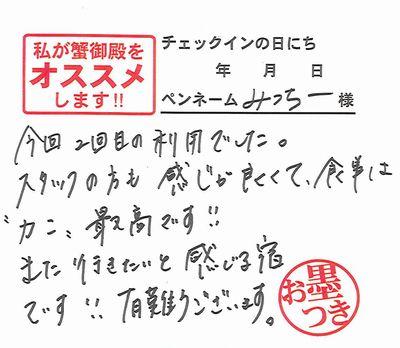 私が蟹御殿を
オススメ
します!!
チェックインの日にち
年 月 日
ペンネーム みっちー 様
今回2回目の利用でした。
スタッフの方も感じが良くて、食事は
"カニ"最高です!!
また行きたいと感じる宿
です!! 有難うございます。
お墨つき